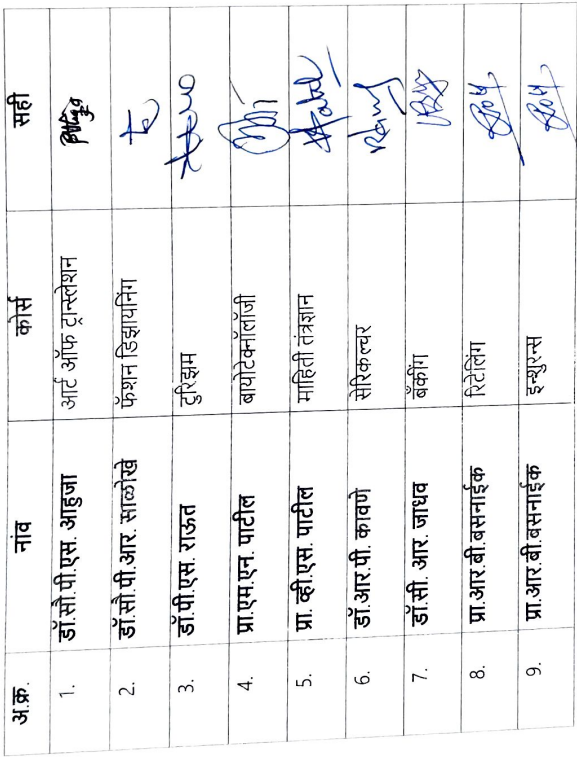 अ.क्र. नांव कोर्स सही
1. डॉ.सौ.पी.एस. आहुजा आर्ट ऑफ ट्रान्स्लेशन
2. डॉ.सौ.पी.आर. साळोखे फॅशन डिझायनिंग
3. डॉ.पी.एस. राऊत टुरिझम
4. प्रा.एम.एन. पाटील बायोटेक्नॉलॉजी
5. प्रा. व्ही.एस. पाटील माहिती तंत्रज्ञान
6. डॉ.आर.पी. कावणे सेरिकल्चर
7. डॉ.सी. आर. जाधव बँकींग
8. प्रा.आर.बी.बसनाईक रिटेलिंग
9. प्रा.आर.बी.बसनाईक इन्शुरन्स